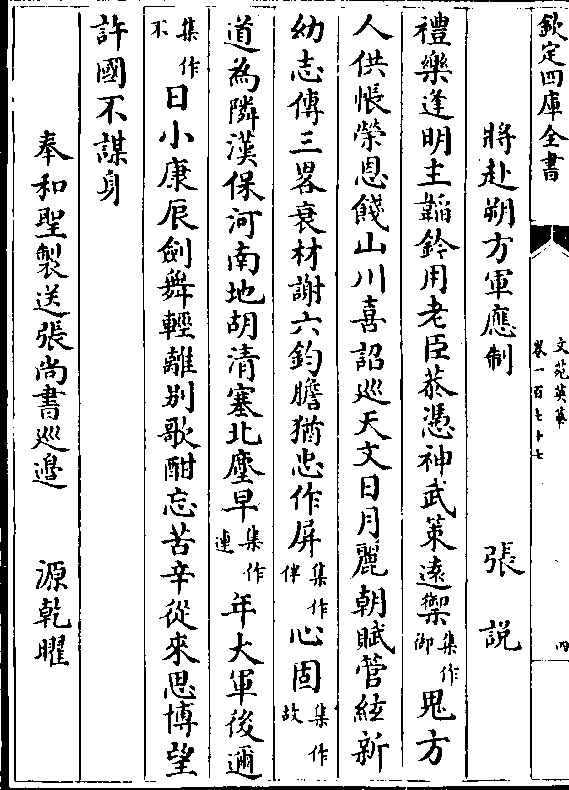 欽定四庫全書
文苑英華
卷一百七十七
將赴朔方軍應制 張說
禮樂逢明主韜鈐用老臣恭憑神武策遠禦集作御鬼方
人供帳榮恩餞山川喜詔巡天文日月麗朝賦管絃新
幼志傳三畧衰材謝六鈞膽猶忠作屏集作伴心固集作故
道為隣漢保河南地胡清塞北塵早集作連年大軍後邇
集作不日小康辰劍舞輕離别歌酣忘苦辛從來思博望
許國不謀身
奉和聖製送張尚書巡邉 源乾曜